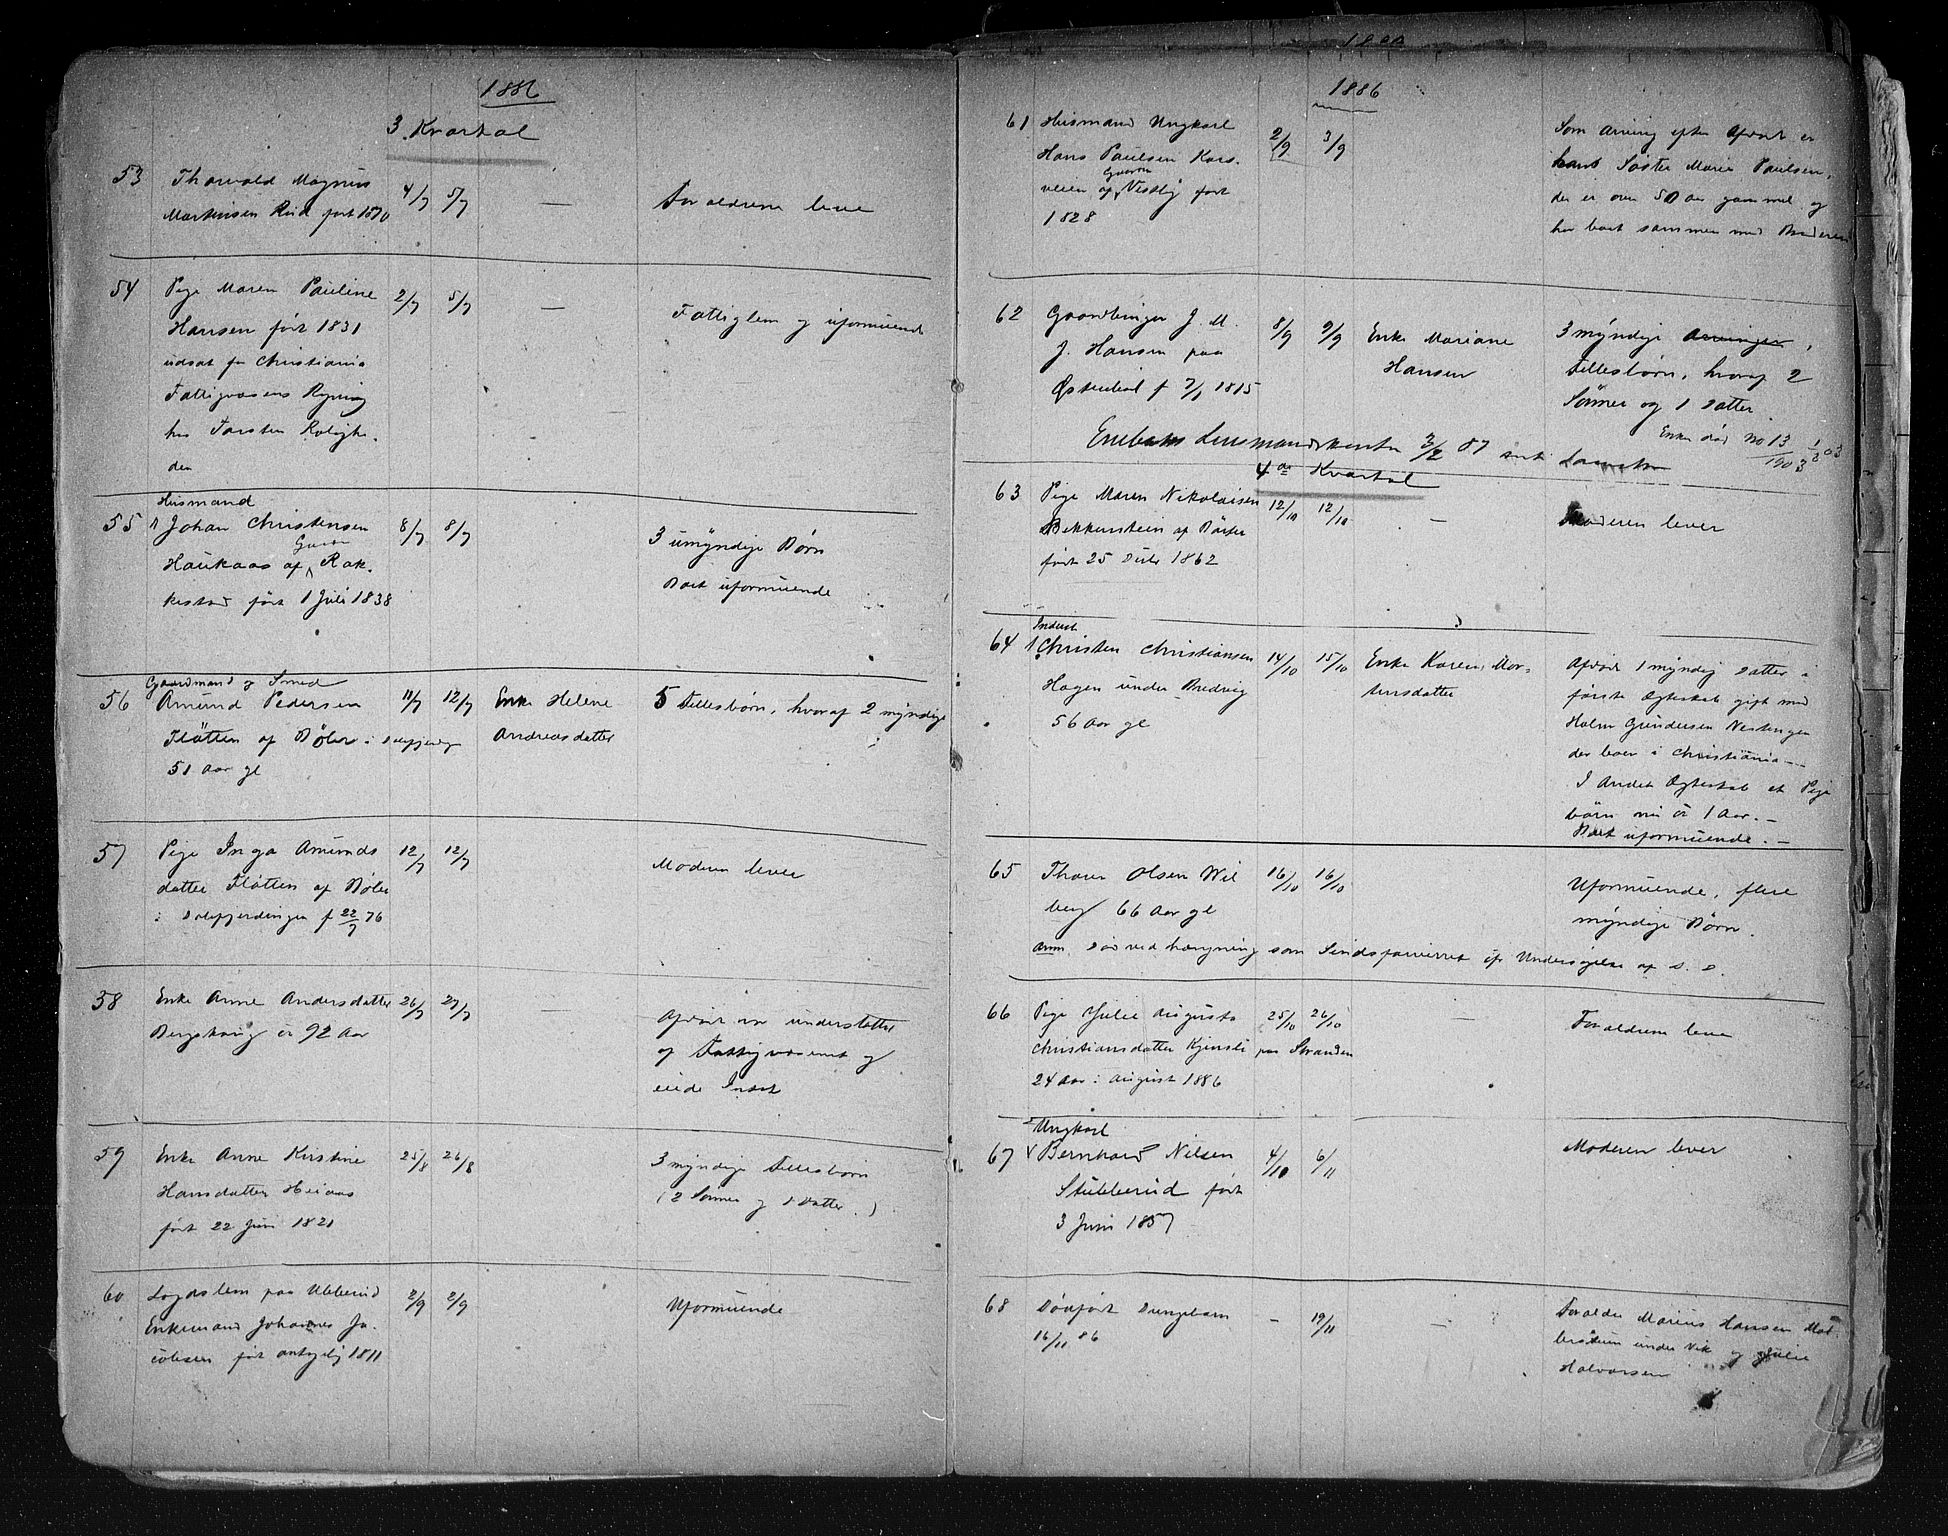 1886
3. Kvartal
53 Thorvald Magnus 4/7 5/7 — Forældrene lever
Martinsen Rud født 1870
54 Pige Maren Pauline 2/7 5/7 — Fattiglem og uformuende
Hansen født 1831
udsat fra Christiania
Fattigvæsens
hos Torsten Rolighe-
den
Husmand
55 Johan Christensen 8/7 8/7 3 umyndige Børn
Gaarden
Haukaas af Rak-
Boet uformuende
kestad født 1 Juli 1838
Gaardmand og Smed
56 Amund Pedersen 11/7 12/7 Enke Helene 5 Fellesbørn, hvoraf 2 myndige
Flåtten af Bøler i Dalefjerdingen Andreasdatter
51 Aar gl
57 Pige Inga Amunds 12/7 12/7 Moderen lever
datter Flåtten af Bøler
i Dalefjerdingen f 22/7 76
58 Enke Anne Andersdatter 26/7 27/7 — Afdøde var understøttet
Berghaug er 92 Aar af Fattigvæsenet og
eiede Intet
59 Enke Anne Kirstine 25/8 26/8 3 myndige Fellesbørn
Hansdatter Heiaas (2 Sønner og 1 Datter.)
født 22 Juni 1821
60 Lægdslem paa Ubberud 2/9 2/9 Uformuende
Enkemand Johannes Ja-
cobsen født antagelig 1811
1886
61 Husmand Ungkarl 2/9 3/9 Som Arving efter Afdøde er
Hans Paulsen Kors- hans Søster Marie Paulsen,
Gaarden
veien af Vestby født der er over 50 Aar gammel og
1828 har boet sammen med Broderen
62 Gaardbruger J. M. 8/9 9/9 Enke Mariane 3 myndige Arvinger,
J. Hansen paa Hansen Fellesbørn, hvoraf 2
Østenbøl f 7/1 1815 Sønner og 1 Datter.
Enke død No 13
1903
Enebaks Lensmandskontor 3/2 87
4de Kvartal
63 Pige Maren Nikolaisen 12/10 12/10 — Moderen lever
Bekkenstein af Børter
født 25 Debr 1862
Inderst
64 Christen Christiansen 14/10 15/10 Enke Karen Mor- Afdøde 1 myndig Datter i
Hagen under Bredvig tensdatter første Egteskab gift med
56 Aar gl Holm Gundersen Nestingen
der boer i Christiania. —
I Andet Egteskab et Pige
børn nu er 1 Aar. —
Boet uformuende. —
65 Thorer Olsen Wil 16/10 16/10 Uformuende, flere
berg 66 Aar gl myndige Børn.
Anm. Død ved hængning som Sindsforvirret if Undersøgelse af D. D.
66 Pige Julie Augusta 25/10 26/10 — Forældrene lever
Christiansdatter Kjensli paa Stranden
24 Aar i August 1886
Ungkarl
67 Bernhard Nilsen 4/10 6/11 Moderen lever
Stubberud født
3 Juni 1857
68 Dødfødt Drengebarn — 19/11 — Forældre Marius Hansen
16/11 86 under Vik og Julie
Halvorsen